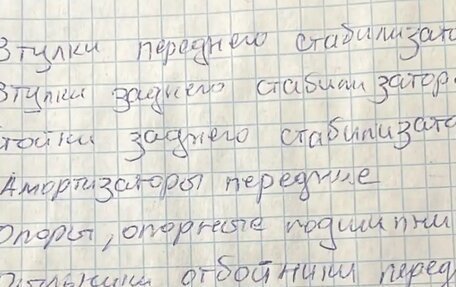 Втулки переднего стабилизато
Втулки заднего стабилизатор
тойки заднего стабилизато
Амортизаторы передние
Опоры, опорные подшипни
Пыльники отбойники перед